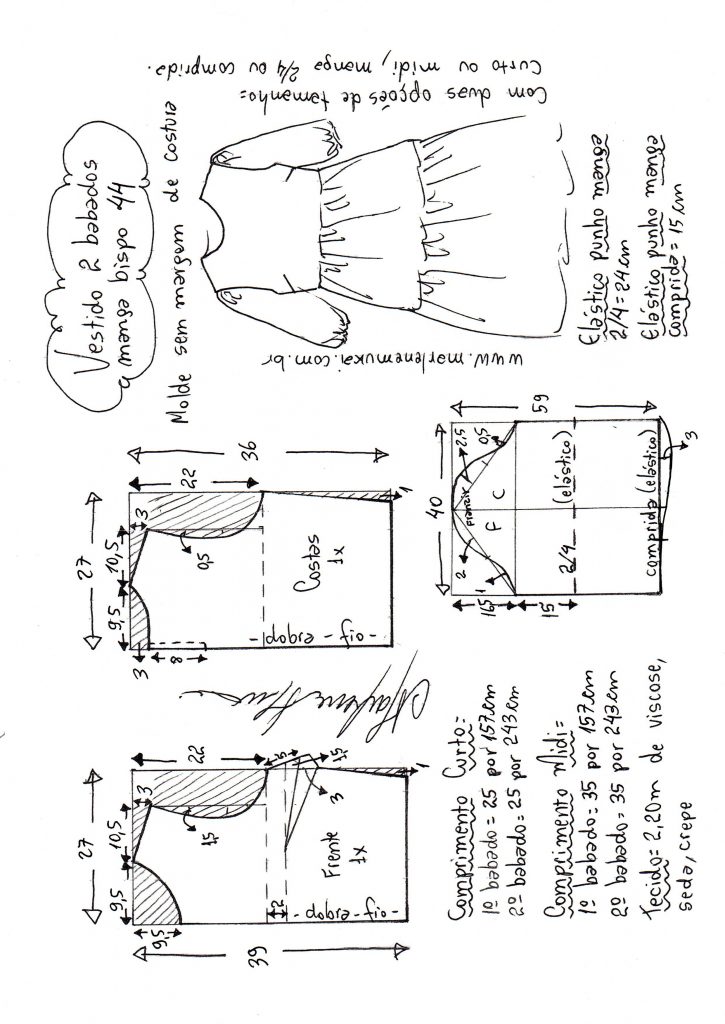 Vestido 2 babados
manga bispo 44
Molde sem margem de costura
Com duas opções de tamanho=
Curto ou midi, manga 2/4 ou comprida.
www.marlenemukai.com.br
Elástico punho manga
2/4=24cm
Elástico punho manga
comprida=15cm
27
9,5
10,5
3
22
36
3
8
0,5
Costas
1x
-fio-dobra-
1
40
59
franzir
2,5
0,5
2
1
F
C
16,5
15
2/4
(elástico)
comprida (elástico)
3
27
9,5
10,5
3
22
39
9,5
1,5
Frente
1x
-fio-dobra-
2
3
1,5
1
Comprimento Curto=
1º babado=25 por 157cm
2º babado=25 por 243cm
Comprimento Midi=
1º babado=35 por 157cm
2º babado=35 por 243cm
Tecido=2,20m de viscose,
seda, crepe